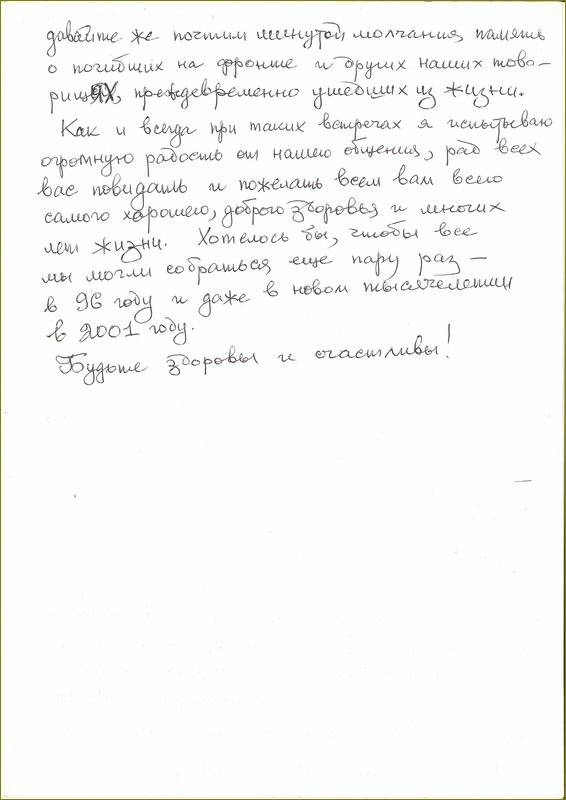 давайте же почтим минутой молчания память
о погибших на фронте и других наших това-
рищах, преждевременно ушедших из жизни.
Как и всегда при таких встречах я испытываю
огромную радость от нашего общения, рад всех
вас повидать и пожелать всем вам всего
самого хорошего, доброго здоровья и многих
лет жизни. Хотелось бы, чтобы все
мы могли собраться еще пару раз –
в 96 году и даже в новом тысячелетии
в 2001 году.
Будьте здоровы и счастливы!